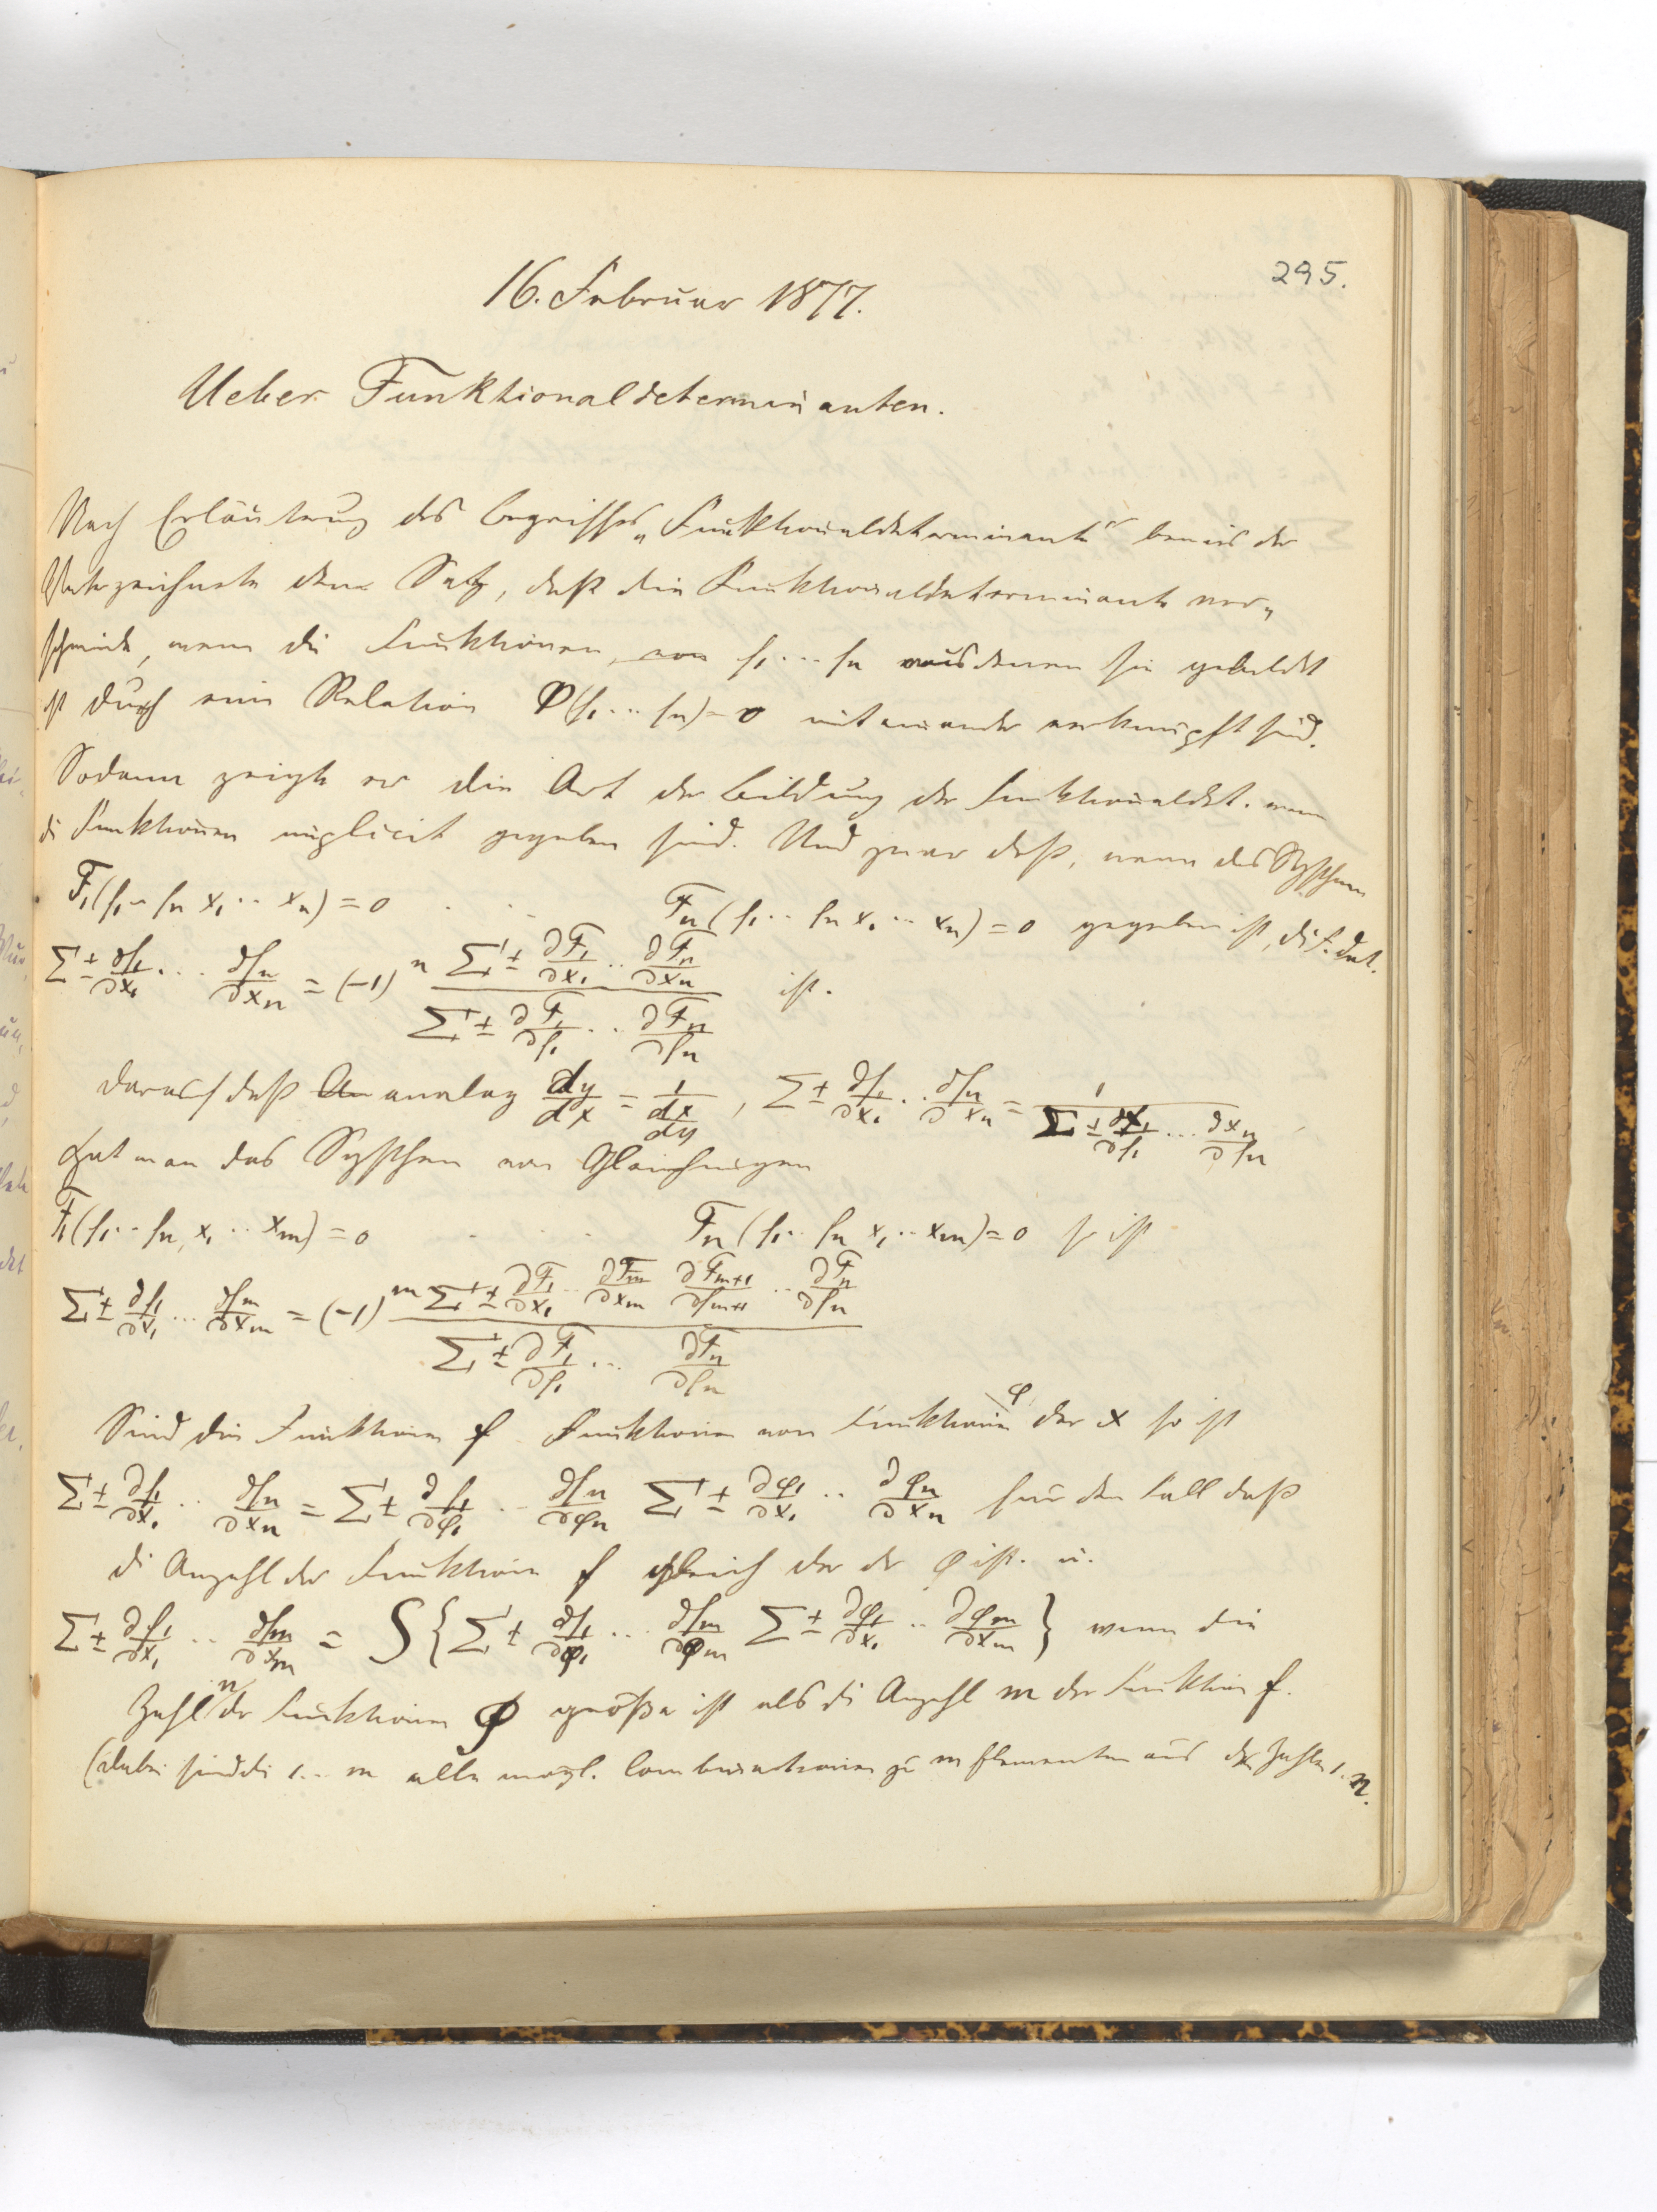 295.
16. Februar 1877.
Ueber Funktionaldeterminanten.
Nach Erläuterung des Begriffes „Funktionaldeterminante" bewies der
Unterzeichnete den Satz, daß die Funktionaldeterminante ver„
schwindet, wenn die Funktionen, von f₁ ... fₙ aus denen sie gebildet
ist durch eine Relation Φ(f₁ ... fₙ) = 0 mit einander verknüpft sind.
Sodann zeigte er die Art der Bildung der Funktionaldet. wenn
die Funktionen implicit gegeben sind. Und zwar daß, wenn das System
F₁(f₁ .. fₙ x₁ .. xₙ) = 0 . . . Fₙ(f₁ .. fₙ x₁ .. xₙ) = 0 gegeben ist, die F. det.
Σ ± ∂f₁/∂x₁ ... ∂fₙ/∂xₙ = (-1)ⁿ (Σ ± ∂F₁/∂x₁ .. ∂Fₙ/∂xₙ) / (Σ ± ∂F₁/∂f₁ .. ∂Fₙ/∂fₙ) ist.
daraus daß analog dy/dx = 1/(dx/dy), Σ ± ∂f₁/∂x₁ .. ∂fₙ/∂xₙ = 1/(Σ ± ∂x₁/∂f₁ ... ∂xₙ/∂fₙ)
Hat man das System von Gleichungen
F₁(f₁ .. fₙ, x₁ .. xₘ) = 0 . . . Fₙ(f₁ .. fₙ x₁ .. xₘ) = 0 so ist
Σ ± ∂f₁/∂x₁ ... ∂fₘ/∂xₘ = (-1)ᵐ (Σ ± ∂F₁/∂x₁ .. ∂Fₘ/∂xₘ ∂Fₘ₊₁/∂fₘ₊₁ .. ∂Fₙ/∂fₙ) / (Σ ± ∂F₁/∂f₁ ... ∂Fₙ/∂fₙ)
Sind die Funktionen f Funktionen von Funktionen φ der x so ist
Σ ± ∂f₁/∂x₁ .. ∂fₙ/∂xₙ = Σ ± ∂f₁/∂φ₁ .. ∂fₙ/∂φₙ Σ ± ∂φ₁/∂x₁ .. ∂φₙ/∂xₙ für den Fall daß
die Anzahl der Funktionen f gleich der der φ ist. u.
Σ ± ∂f₁/∂x₁ .. ∂fₘ/∂xₘ = S{Σ ± ∂f₁/∂φ₁ ... ∂fₘ/∂φₘ Σ ± ∂φ₁/∂x₁ .. ∂φₘ/∂xₘ} wenn die
Zahl n der Funktionen φ größer ist als die Anzahl m der Funktionen f.
(dabei sind die 1 .. m alle mögl. Combinationen zu m Elementen aus der Zahlen 1 .. n.